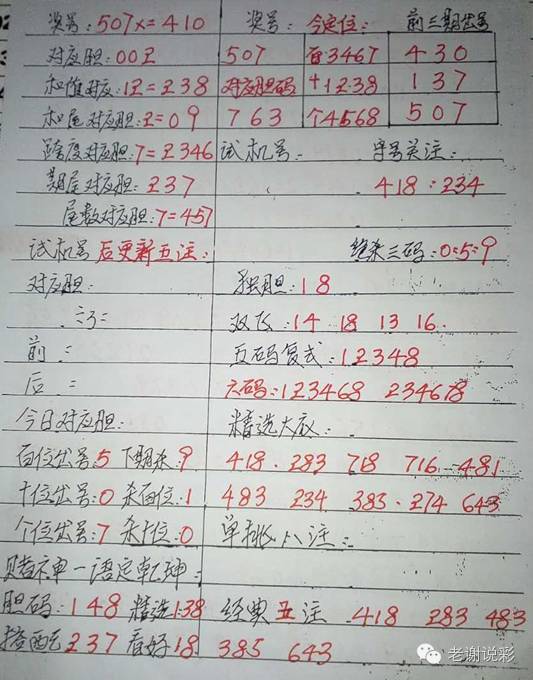 奖号:507x=410 奖号: 今定位: 前三期出号
对应胆:00Z 507 百:3467 430
和值对应:12=238 对应胆码 十1238 137
和尾对应胆:2=09 763 个4568 507
跨度对应胆:7=2346 试机号: 字号关注:
期尾对应胆:237 418:234
尾数对应胆:7=457
试机号后更新五注: 绝杀三码:0:5:9
对应胆: 独胆:18
双飞:14 18 13 16
前: 五码复式:12348
后: 六码:123468 234678
今日对应胆: 精选大底:
百位出号:5 下期杀:9 418. 283 718 716 481
十位出号:0 杀百位:1 483 234 383. 274 643
个位出号:7 杀十位:0 单挑八注:
赌神一语定乾坤:
胆码:148 精选138 经典五注 418 283 483
搭配237 看好18 385 643
老谢说彩